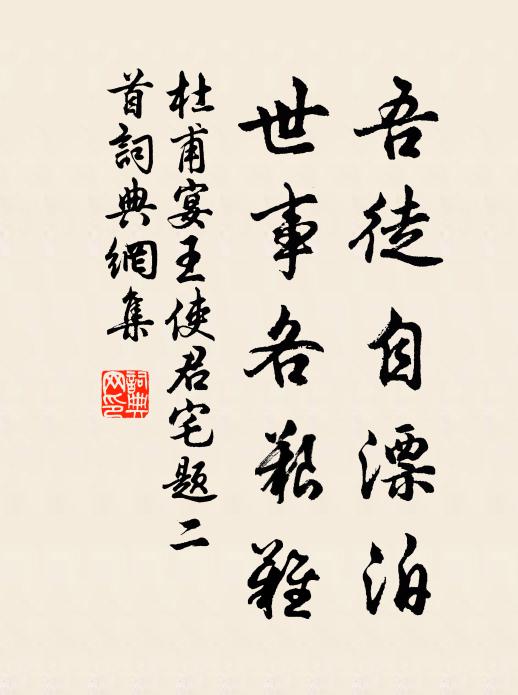 吾徒自漂泊
世事各艱難
杜甫宴王使君宅題二
首詞典網集
詞典
网印